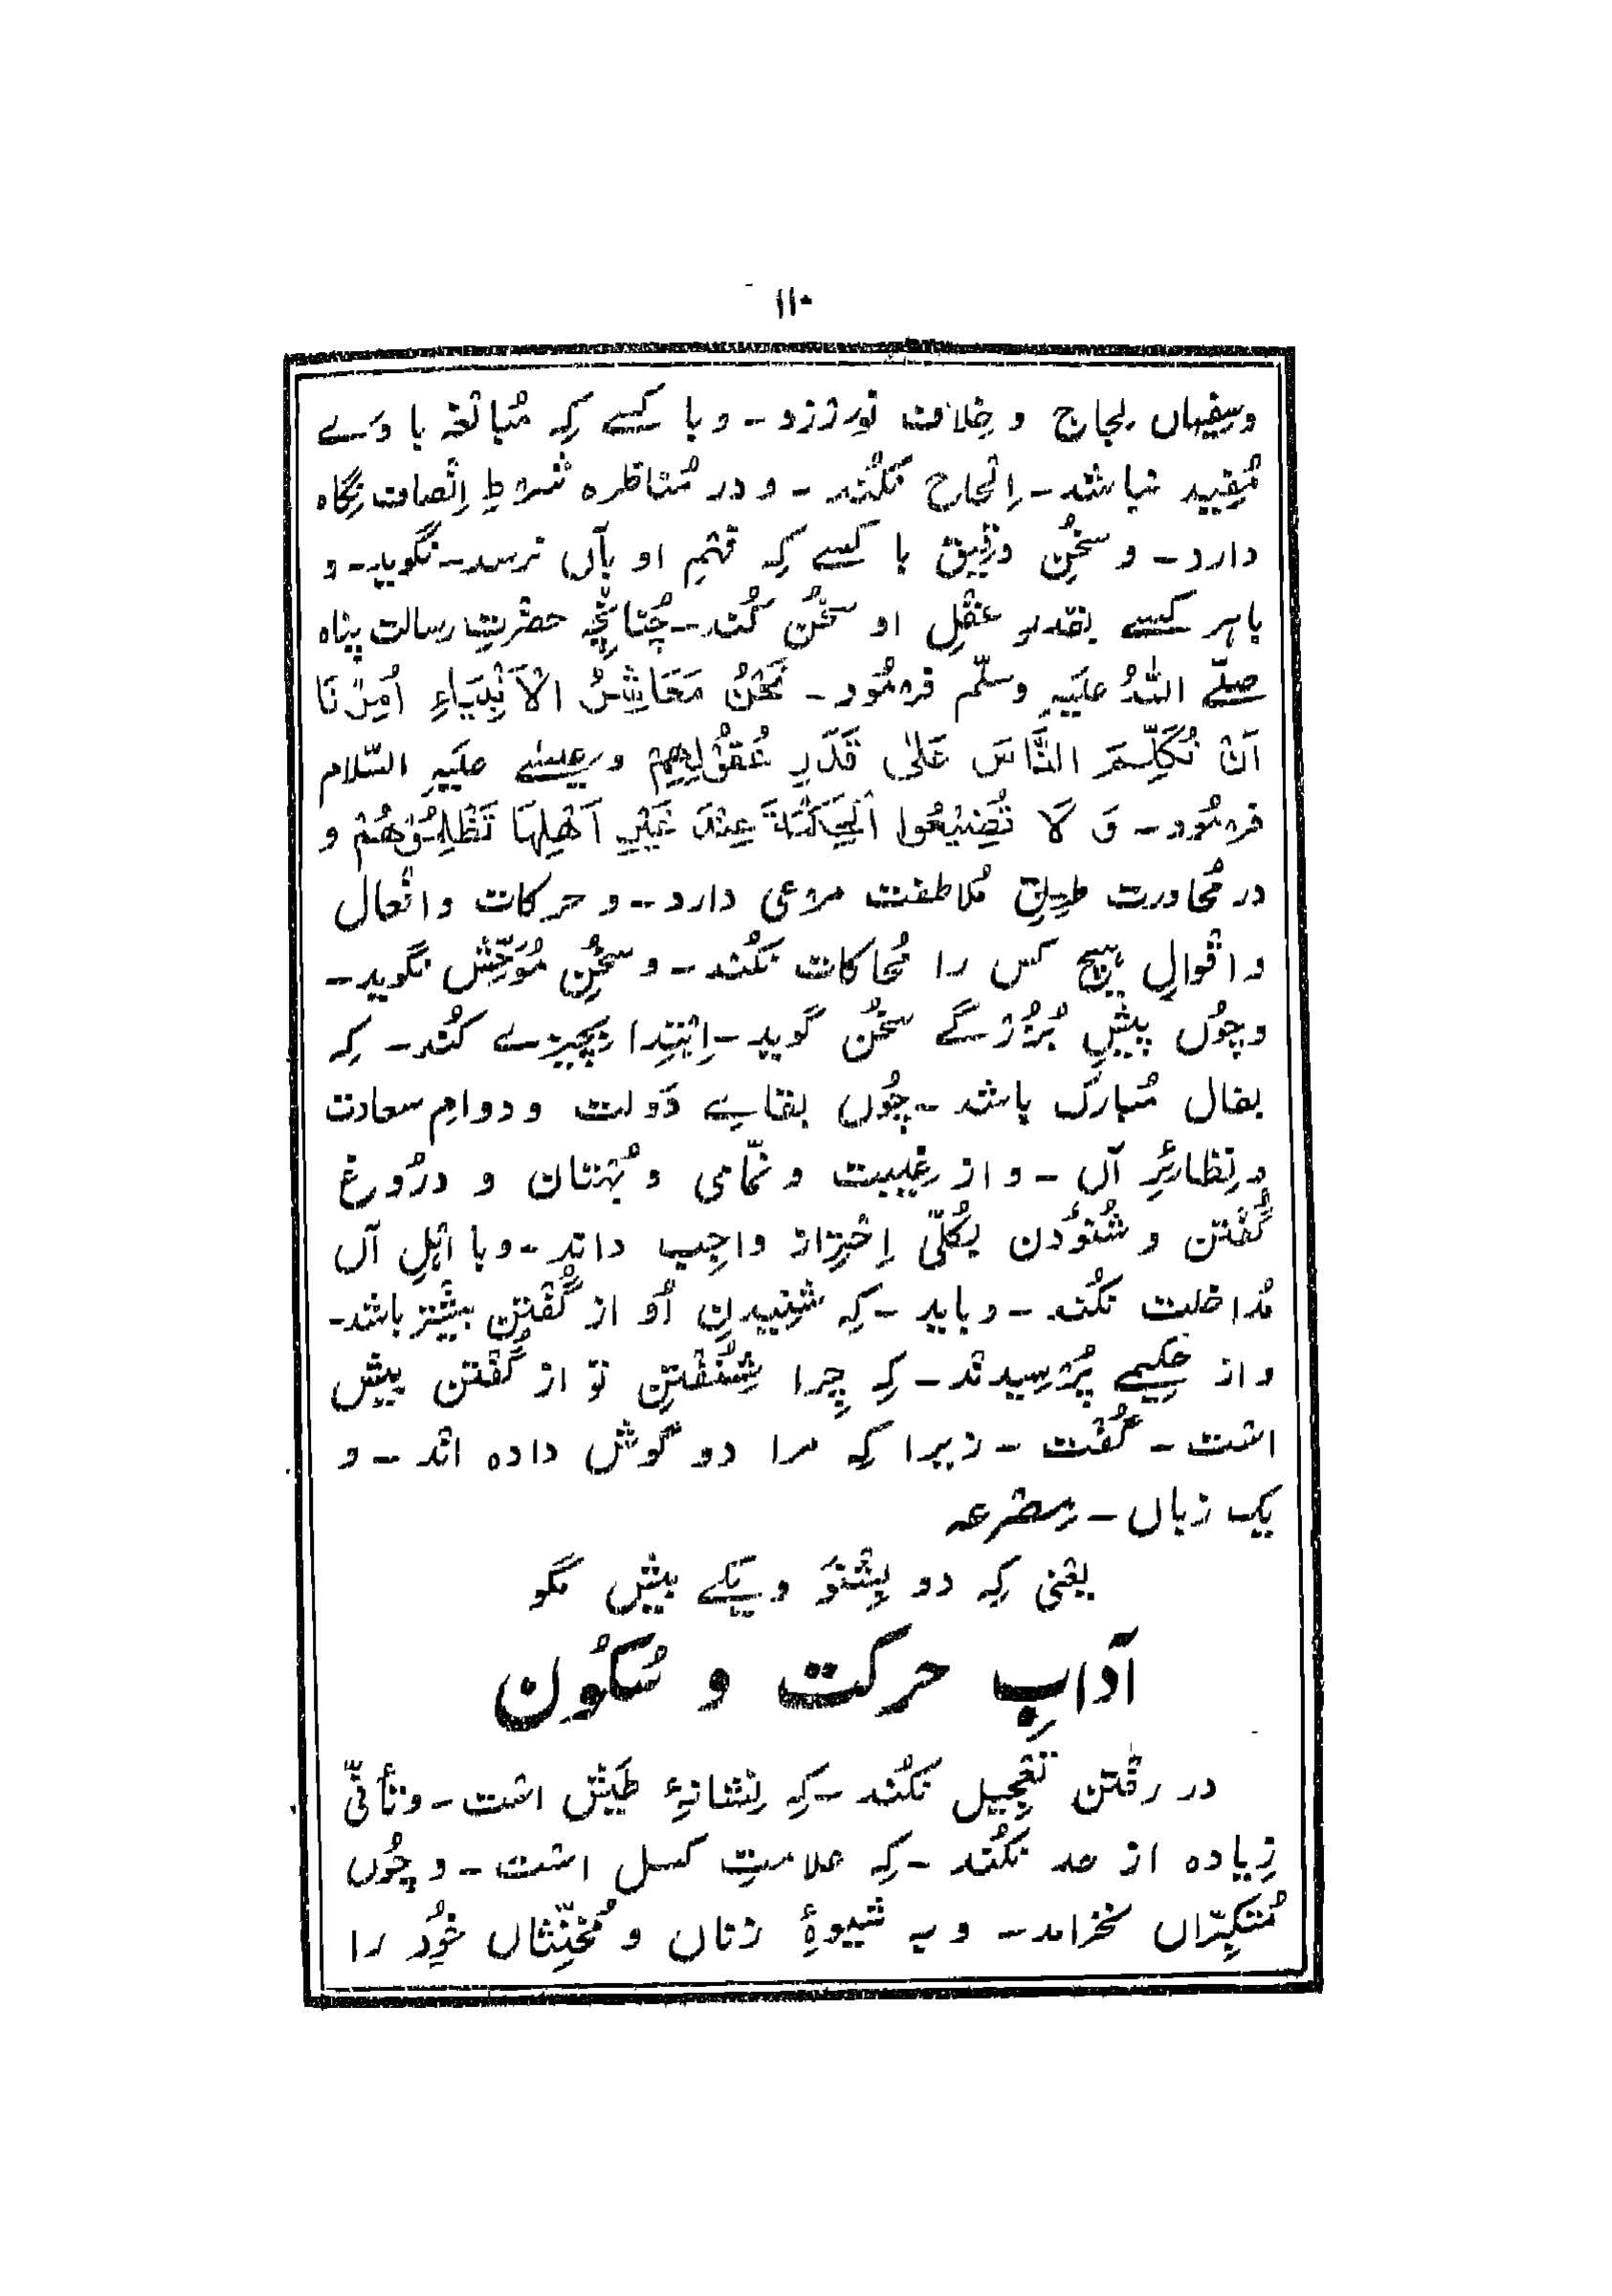 ۱۱۰
وسفِیہاں لجاج و خِلاف نورزد - و با کسے کِہ مُبالغہ با وَے
مُفِید نباشد - اِلْحاح نکُند - و در مُناظرہ شروطِ اِنْصاف نِگاہ
دارد - و سخُنِ دقِیق با کسے کِہ فہمِ او بآں نرسد - نگوید - و
باہر کسے بقدرِ عقْلِ او سخُن کُند - چُنانْچِہ حضْرتِ رسالت پناہ
صلّے اللہُ علَیہِ وسلّم فرمُود - نَحْنُ مَعَاشِرُ الْاَنْبِیَاءِ اُمِرْنَا
اَنْ نُکَلِّمَ النَّاسَ عَلٰی قَدَرِ عُقُوْلِھِمْ وعِیسٰے علَیہِ السّلام
فرمُود - وَ لَا تُضِیْعُوا الْحِکْمَۃَ عِنْدَ غَیْرِ اَھْلِہَا تَظْلِمُوْھُمْ و
در مُحاورت طرِیقِ مُلاطفت مرعی دارد - و حرکات و افْعال
و اقْوالِ ہیچ کس را مُحاکات نکُند - و سخُنِ مُوَحِّش نگوید -
و چُوں پیشِ بُزُرْگے سخُن گوید - اِبْتِدا بچِیزے کُند - کِہ
بفال مُبارک باشد - چُوں بقاے دَولت و دوامِ سعادت
و نظائرِ آں - و از غِیبت و نمّامی و بُہْتان و درُوغ
گُفْتن و شُنوُدن بکُلّی اِحْتِراز واجِب داند - و با اہْلِ آں
مُداخلت نکُند - و باید - کِہ شنِیدنِ اُو از گُفْتن بیشْتر باشد -
و از حکِیمے پُرْسیدند - کِہ چِرا شِنُفْتنِ تو از گُفْتن بیش
اسْت - گُفْت - زیرا کِہ مرا دو گوش داده اند - و
یک زباں - مِصْرعہ
یعْنی کِہ دو بِشْنَو و یکے بیش مگو
آدابِ حرکت و سُکُون
در رفْتن تعْجِیل نکُند - کِہ نِشانۂِ طَیش اسْت - و تأنّی
زِیادہ از حد نکُند - کِہ علامتِ کسل اسْت - و چُوں
مُتکبِّراں نخرامد - و بہ شیوۂِ زناں و مُخنّثاں خُود را